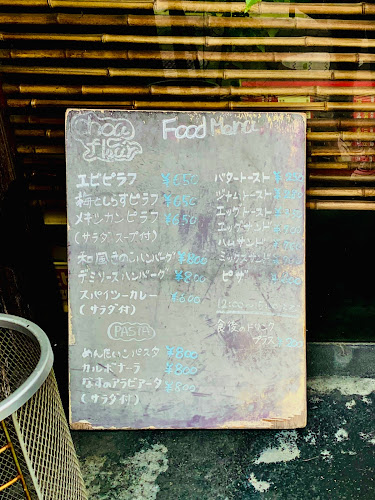 Food Menu
エビピラフ ¥650
梅としらすピラフ ¥650
メキシカンピラフ ¥650
(サラダ、スープ付)
和風きのこハンバーグ ¥800
デミソースハンバーグ ¥800
スパイシーカレー ¥600
(サラダ付)
PASTA
めんたいこパスタ ¥800
カルボナーラ ¥800
なすのアラビアータ ¥800
(サラダ付)
バタートースト
ジャムトースト
エッグトースト
エッグサンド
ハムサンド
ミックスサンド
ピザ
食後のドリンク
プラス